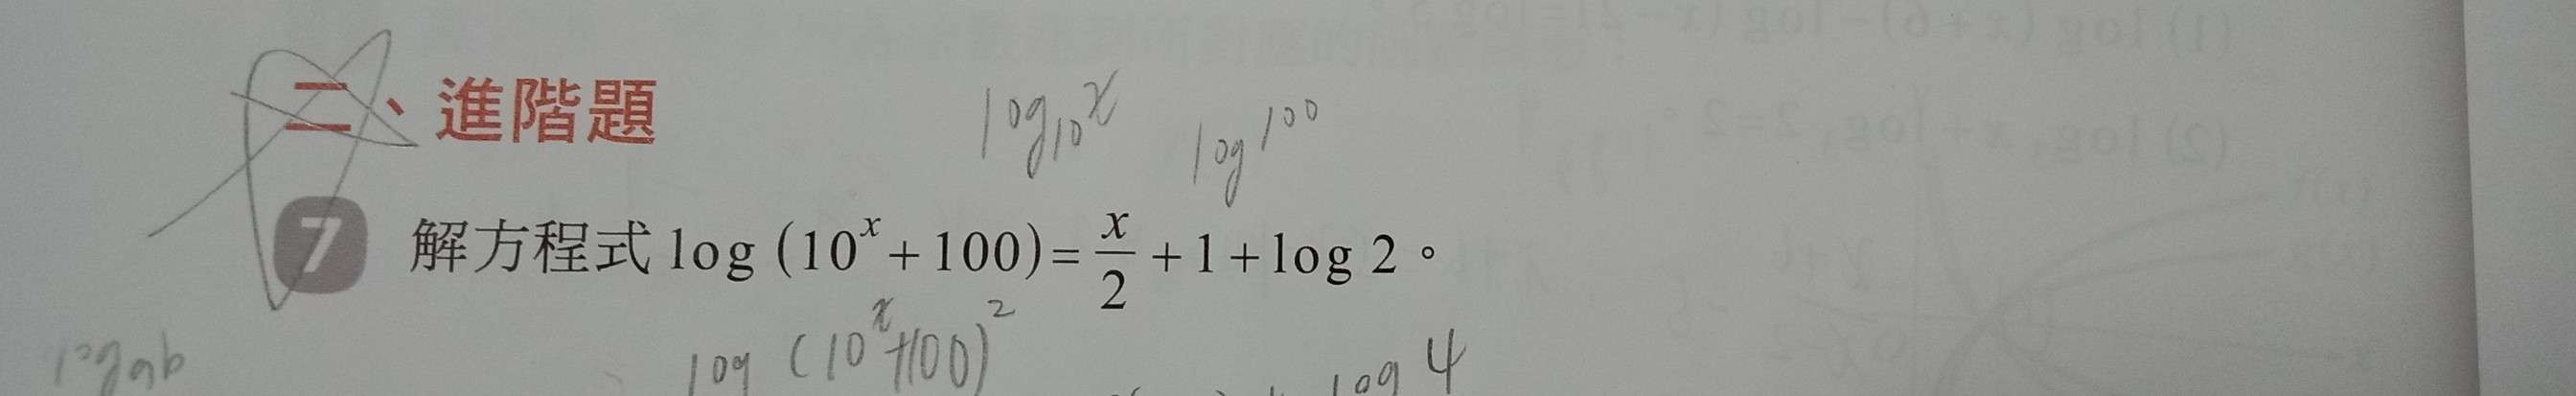 二、進階題
log₁₀x log 100
7 解方程式 log (10ˣ+100)= x/2 +1+log 2。
log (10ˣ+100)² log 4
log ab